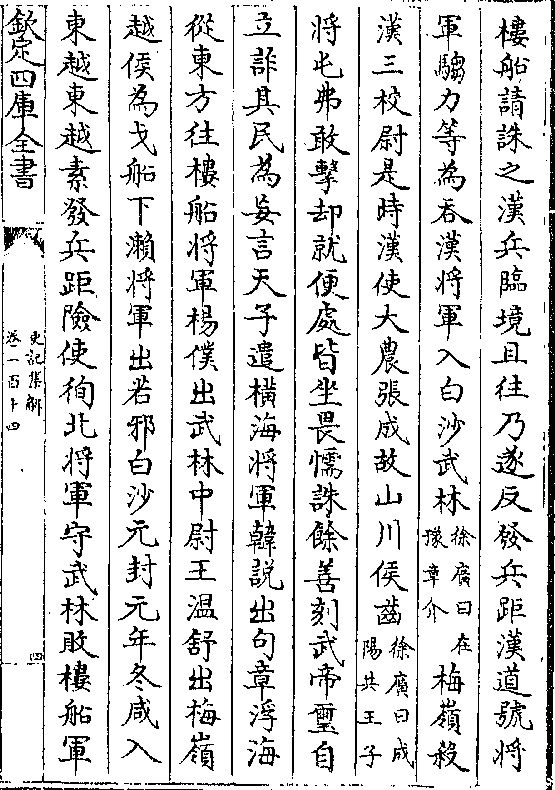 樓船請誅之漢兵臨境且往乃遂反發兵距漢道號將
軍騶力等為吞漢將軍入白沙武林徐廣曰在豫章介梅嶺殺
漢三校尉是時漢使大農張成故山川侯齒徐廣曰成陽共王子
將屯弗敢擊却就便處皆坐畏懦誅餘善刻武帝璽自
立詐其民為妄言天子遣橫海將軍韓説出句章浮海
從東方往樓船將軍楊僕出武林中尉王温舒出梅嶺
越侯為戈船下瀨將軍出若邪白沙元封元年冬咸入
東越東越素發兵距險使徇北將軍守武林敗樓船軍
欽定四庫全書
史記集解
卷一百十四
四